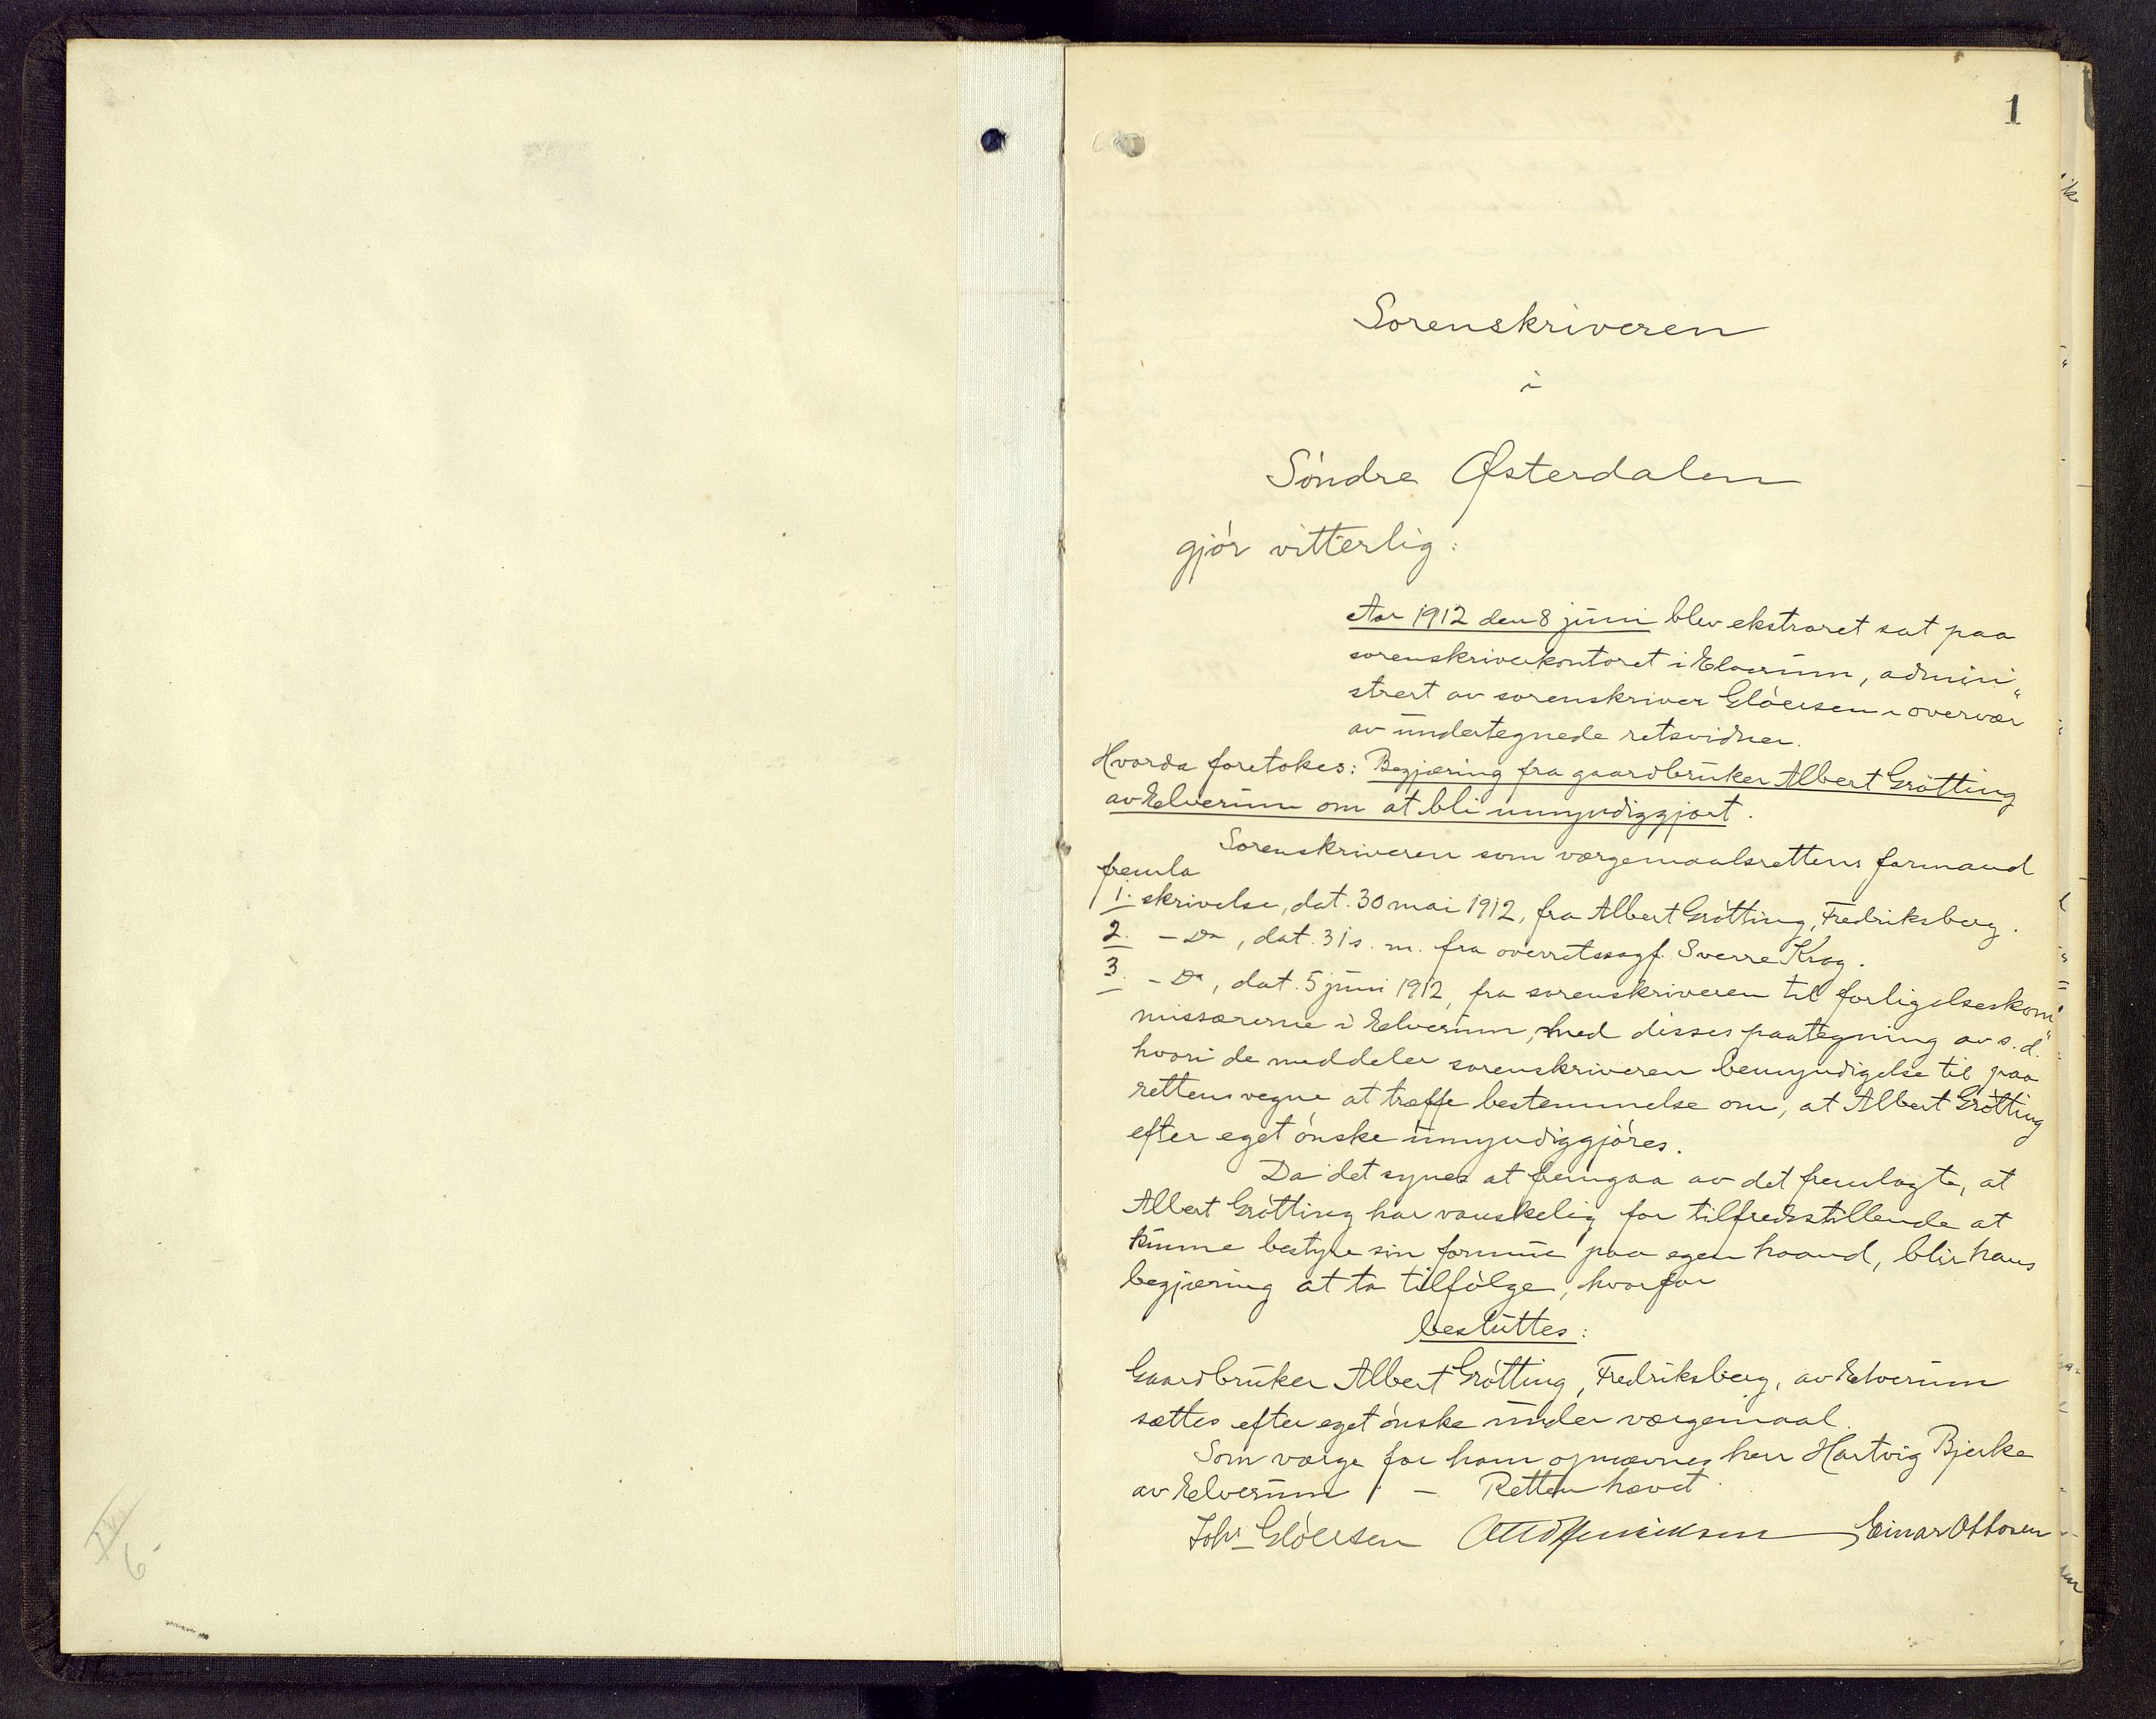 1
Sorenskriveren
i
Söndre Østerdalen
gjör vitterlig:
Aar 1912 den 8 juni blev ekstraret sat paa
sorenskriverkontoret i Elverum, admini"
strert av sorenskriver Glöersen i overvær
av undertegnede retsvidner.
Hvorda foretokes: Begjæring fra gaardbruker Albert Grötting
av Elverum om at bli umyndiggjort.
Sorenskriveren som værgemaalsrettens formand
fremla
1. skrivelse, dat. 30 mai 1912, fra Albert Grötting, Fredriksberg.
2. - Do, dat. 31 s. m. fra overretssagf. Sverre Krog.
3. - Do, dat. 5 juni 1912, fra sorenskriveren til forligelseskom"
missærerne i Elverum, med disses paategning av s. d.
hvori de meddeler sorenskriveren bemyndigelse til paa
rettens vegne at træffe bestemmelse om, at Albert Grötting
efter eget önske umyndiggjöres.
Da det synes at fremgaa av det fremlagte, at
Albert Grötting har vanskelig for tilfredsstillende at
kunne bestyre sin formue paa egen haand, blir hans
begjæring at ta tilfölge, hvorfor
besluttes:
Gaardbruker Albert Grötting, Fredriksberg, av Elverum
sættes efter eget önske under værgemaal.
Som værge for ham opnævnes herr Hartvig Bjerke
av Elverum. - Retten hævet.
Johs Glöersen Otto Henriksen Einar Ottosen